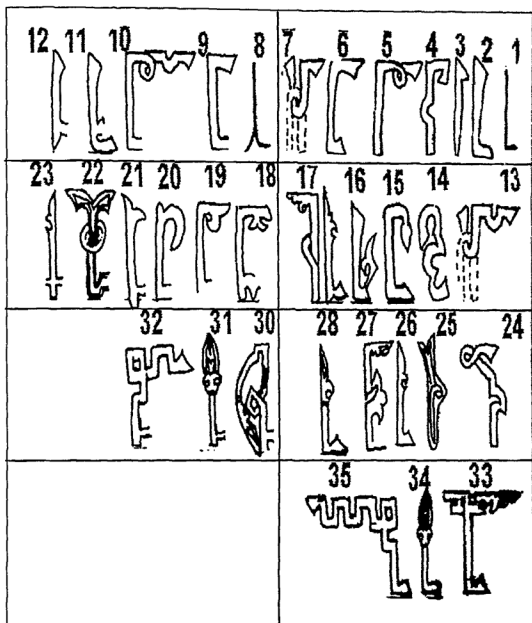 12 11 10 9 8 7 6 5 4 3 2 1
23 22 21 20 19 18 17 16 15 14 13
32 31 30 28 27 26 25 24
35 34 33